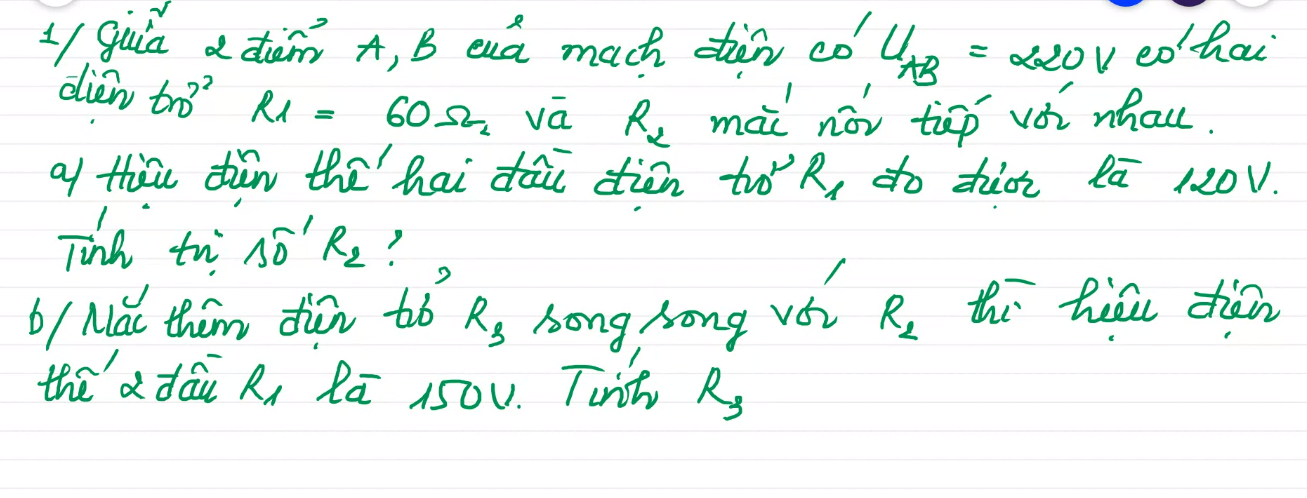 1/ Giữa 2 điểm A, B của mạch điện có U_AB = 220V có hai
điện trở R1 = 60Ω và R₂ mắc nối tiếp với nhau.
a/ Hiệu điện thế hai đầu điện trở R₁ đo được là 120V.
Tính trị số R₂ ?
b/ Mắc thêm điện trở R₃ song song với R₂ thì hiệu điện
thế 2 đầu R₁ là 150V. Tính R₃